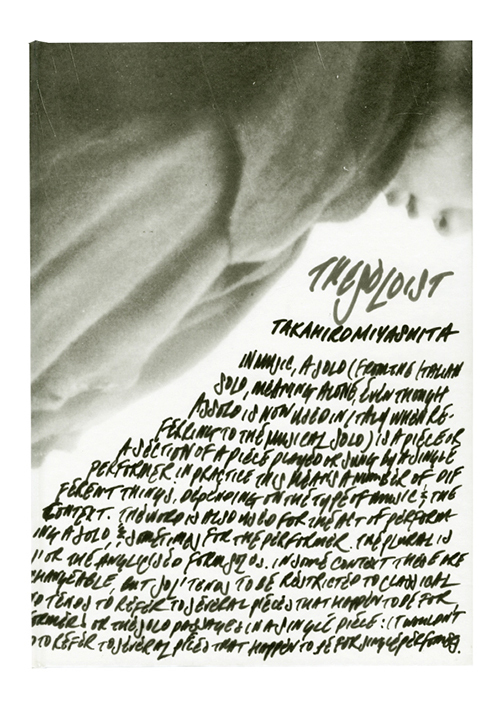 THESOLOIST
TAKAHIROMIYASHITA
IN MUSIC, A SOLO (FROM THE ITALIAN
SOLO, MEANING ALONE, EVEN THOUGH
ASSOLO IS NOW USED IN ITALY WHEN RE-
FERRING TO THE MUSICAL SOLO) IS A PIECE OR
A SECTION OF A PIECE PLAYED OR SUNG BY A SINGLE
PERFORMER. IN PRACTICE THIS MEANS A NUMBER OF DIF
FERENT THINGS, DEPENDING ON THE TYPE OF MUSIC & THE
CONTEXT. THE WORD IS ALSO USED FOR THE ACT OF PERFORM-
ING A SOLO, & SOMETIMES FOR THE PERFORMER. THE PLURAL IS
OR THE ANGLICISED FORM SOLOS. IN SOME CONTEXT THESE ARE
CHANGEABLE, BUT SOLI TENDS TO BE RESTRICTED TO CLASSICAL
TENDS TO REFER TO SEVERAL PIECES THAT HAPPEN TO BE FOR
OR THE SOLO PASSAGES IN A SINGLE PIECE: IT WOULDN'T
TO REFER TO SEVERAL PIECES THAT HAPPEN TO BE FOR SINGLE